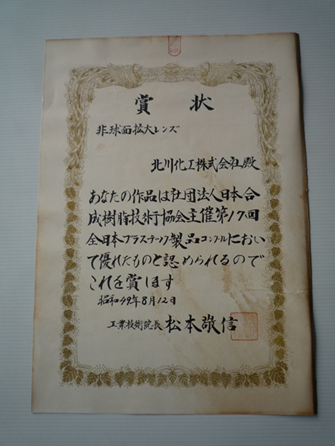 賞状
非球面拡大レンズ
北川化工株式会社殿
あなたの作品は社団法人日本合
成樹脂技術協会主催第17回
全日本プラスチック製品コンクールにおい
て優れたものと認められるので
これを賞します
昭和49年8月12日
工業技術院長 松本敬信